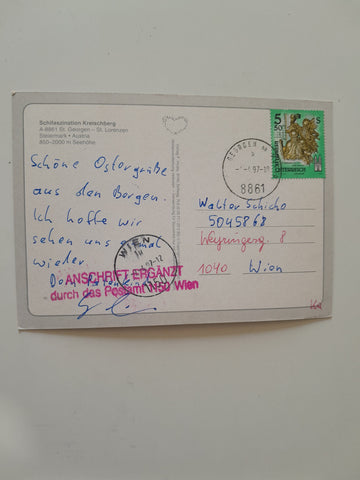 Schifaszination Kreischberg
A-8861 St. Georgen – St. Lorenzen
Steiermark • Austria
850–2000 m Seehöhe
Schöne Ostergrüße
aus den Bergen.
Ich hoffe wir
sehen uns
wieder.
ANSCHRIFT ERGÄNZT
durch das Postamt 1150 Wien
WIEN
8861
5 50 S
Walter Schicho
5045868
Weyringerg. 8
1040 Wien